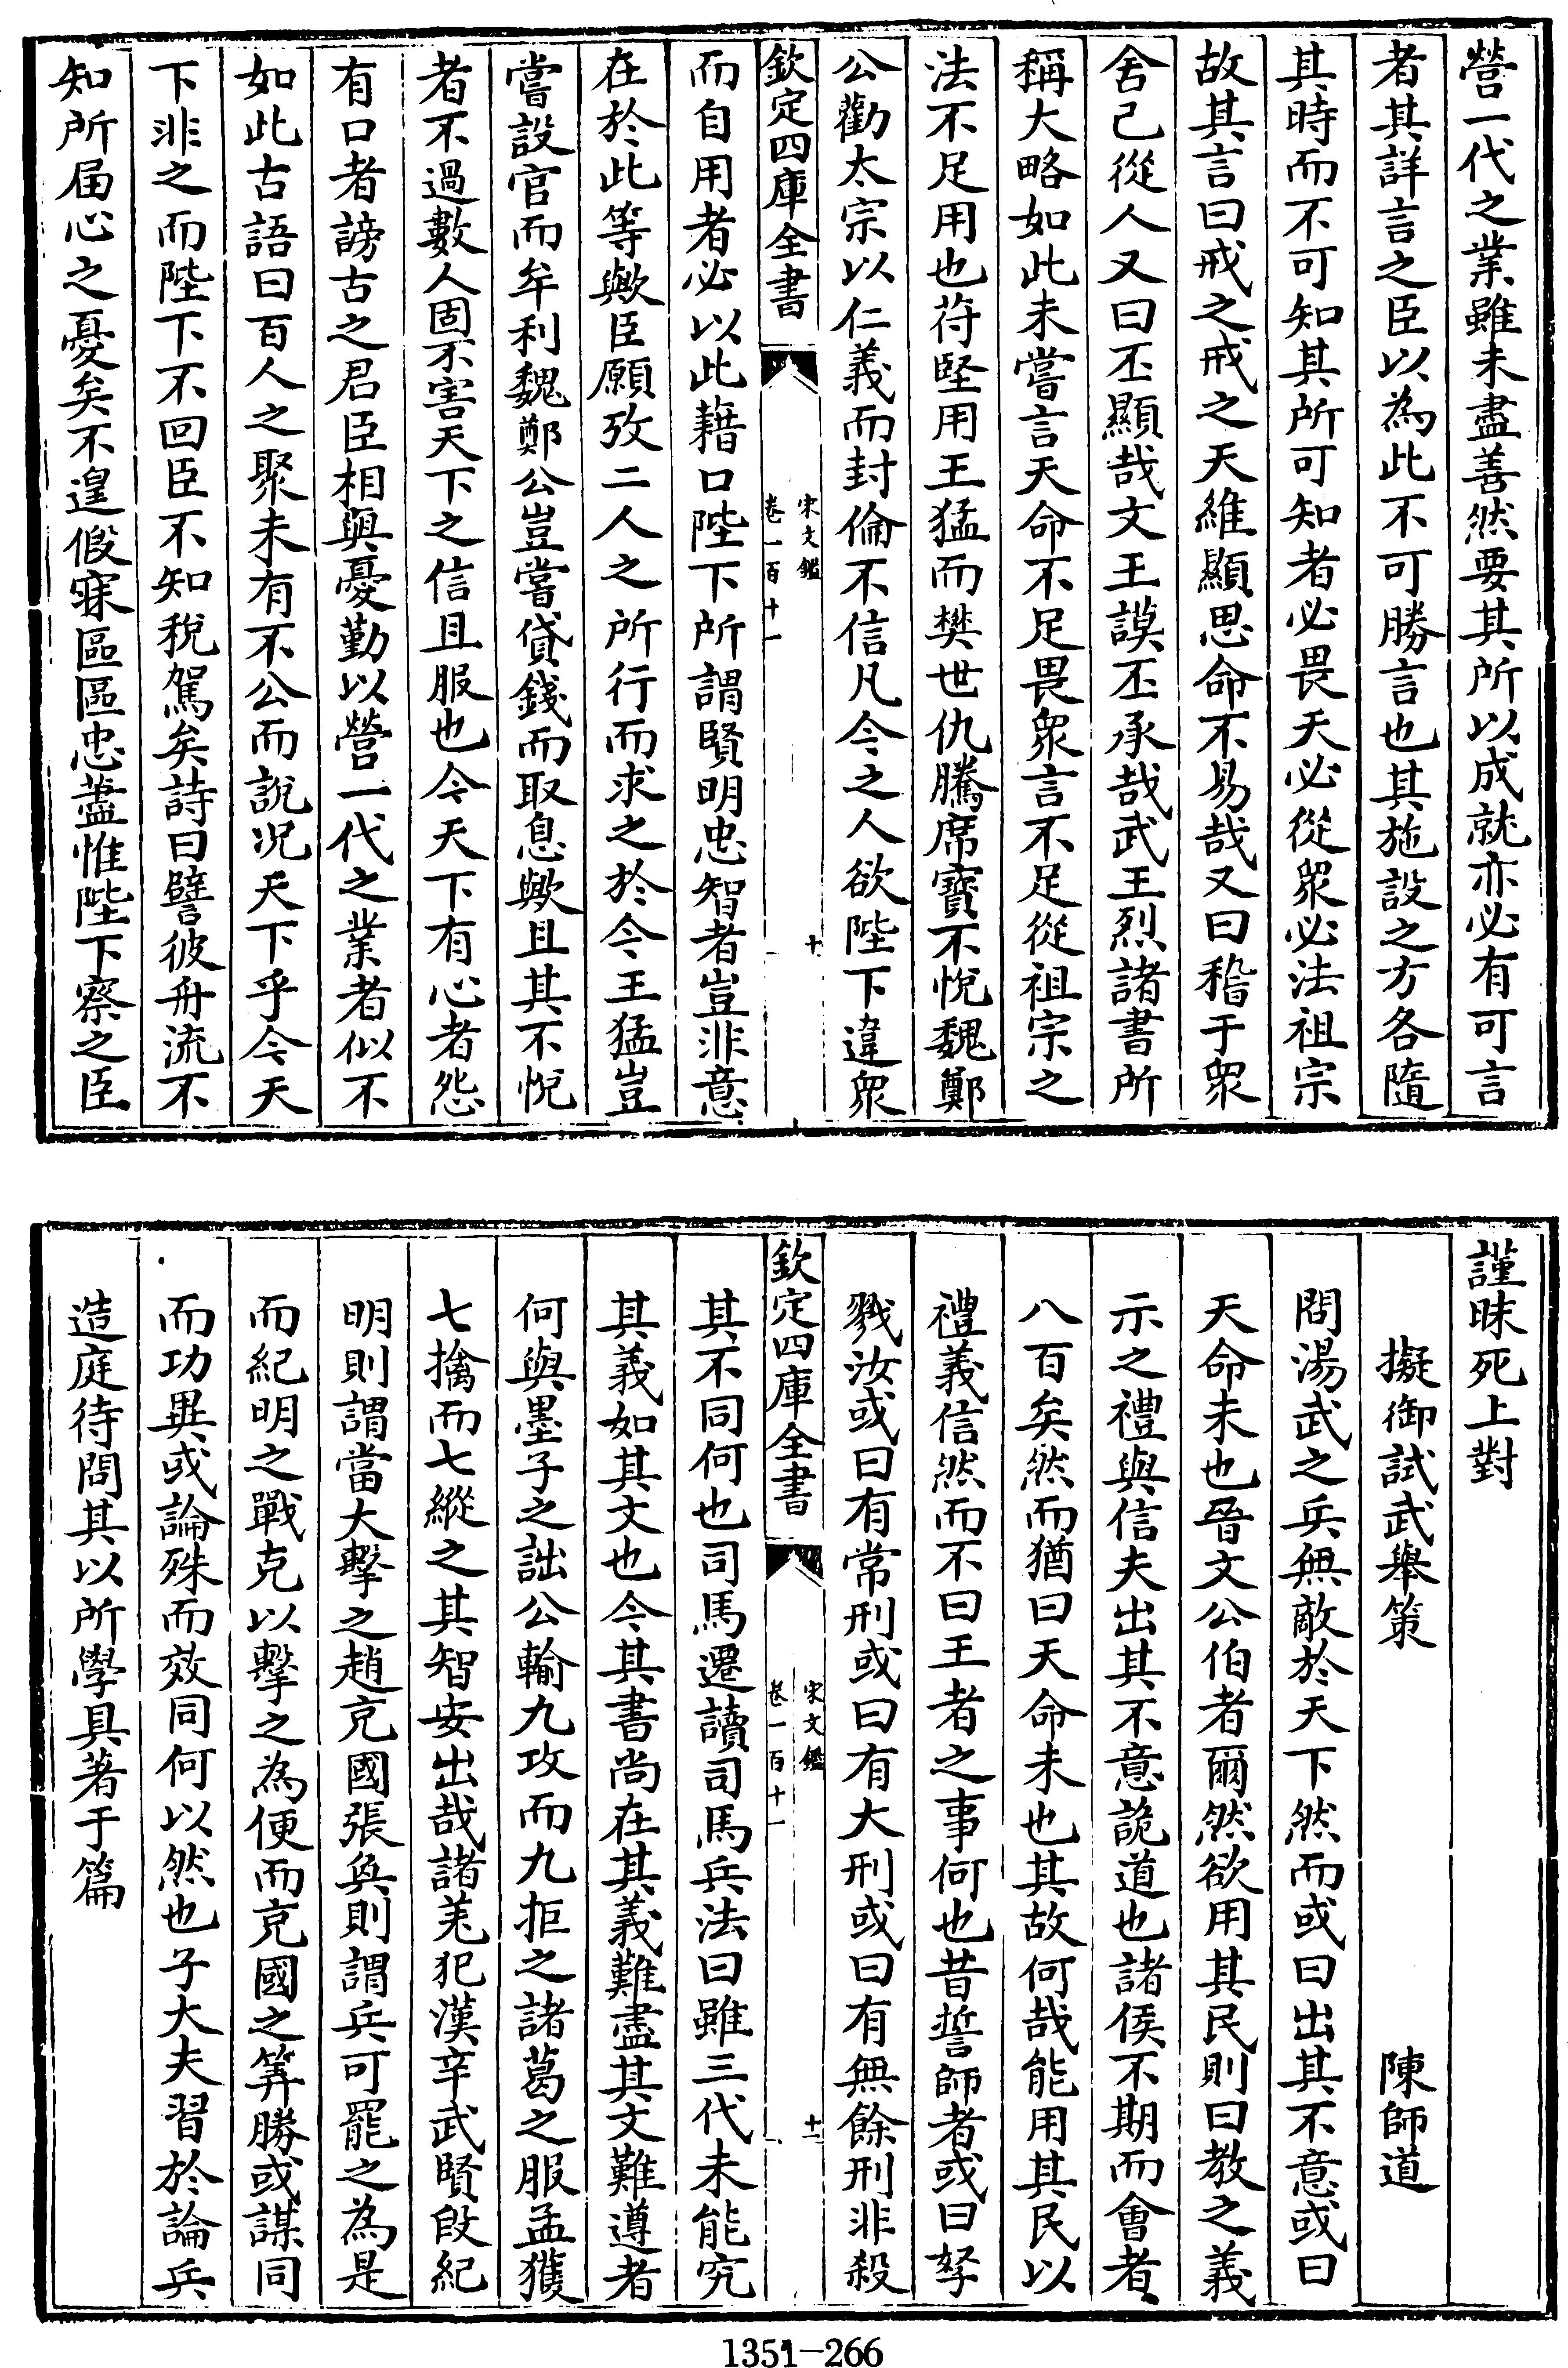 營一代之業雖未盡善然要其所以成就亦必有可言
者其詳言之臣以為此不可勝言也其施設之方各隨
其時而不可知其所可知者必畏天必從衆必法祖宗
故其言曰戒之戒之天維顯思命不易哉又曰稽于衆
舍己從人又曰丕顯哉文王謨丕承哉武王烈諸書所
稱大略如此未嘗言天命不足畏衆言不足從祖宗之
法不足用也苻堅用王猛而樊世仇騰席寳不悅魏鄭
公勸太宗以仁義而封倫不信凡今之人欲陛下違衆
欽定四庫全書
宋文鑑
卷一百十一
十
而自用者必以此藉口陛下所謂賢明忠智者豈非意
在於此等歟臣願攷二人之所行而求之於今王猛豈
嘗設官而牟利魏鄭公豈嘗貸錢而取息歟且其不悅
者不過數人固不害天下之信且服也今天下有心者怨
有口者謗古之君臣相與憂勤以營一代之業者似不
如此古語曰百人之聚未有不公而說况天下乎今天
下非之而陛下不回臣不知稅駕矣詩曰譬彼舟流不
知所届心之憂矣不遑假寐區區忠藎惟陛下察之臣
謹昧死上對
擬御試武舉策　陳師道
問湯武之兵無敵於天下然而或曰出其不意或曰
天命未也晉文公伯者爾然欲用其民則曰教之義
示之禮與信夫出其不意詭道也諸侯不期而會者
八百矣然而猶曰天命未也其故何哉能用其民以
禮義信然而不曰王者之事何也昔誓師者或曰孥
戮汝或曰有常刑或曰有大刑或曰有無餘刑非殺
欽定四庫全書
宋文鑑
卷一百十一
十一
其不同何也司馬遷讀司馬兵法曰雖三代未能究
其義如其文也今其書尚在其義難盡其文難遵者
何與墨子之詘公輸九攻而九拒之諸葛之服孟獲
七擒而七縱之其智安出哉諸羌犯漢辛武賢段紀
明則謂當大擊之趙充國張奐則謂兵可罷之為是
而紀明之戰克以擊之為便而充國之筭勝或謀同
而功異或論殊而效同何以然也子大夫習於論兵
造庭待問其以所學具著于篇
1351-266